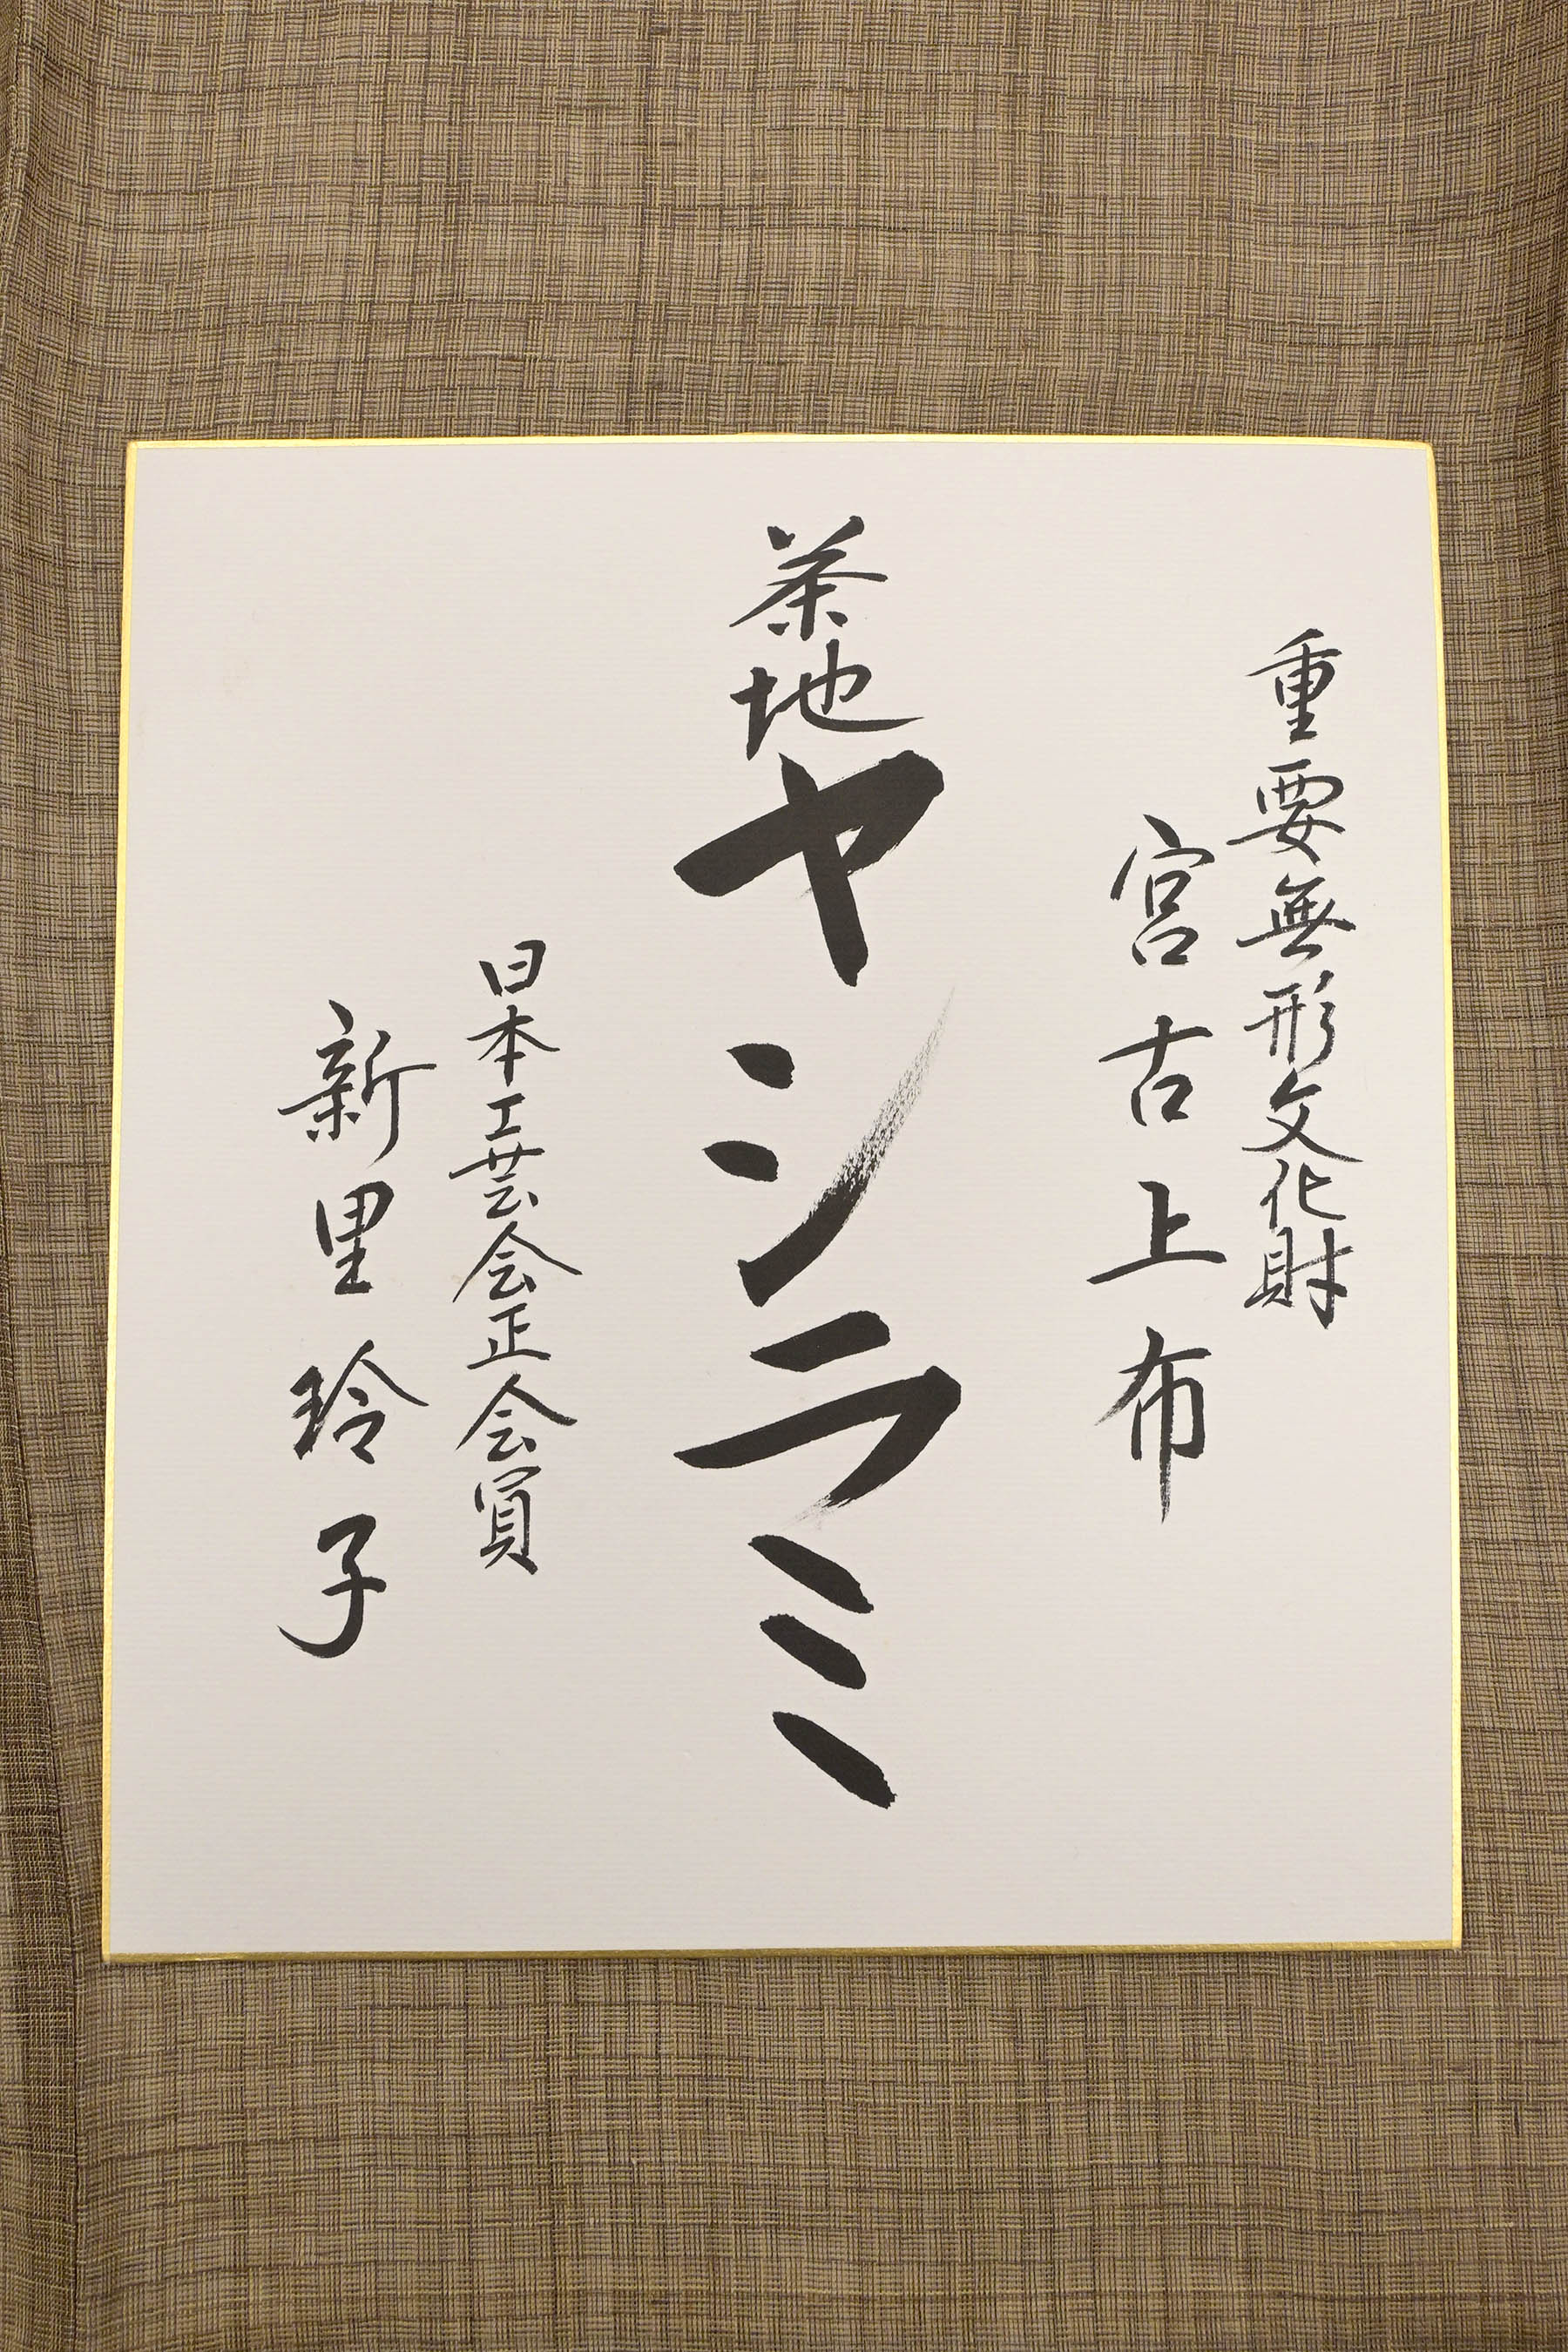 重要無形文化財
宮古上布
茶地ヤシラミ
日本工芸会正会員
新里玲子